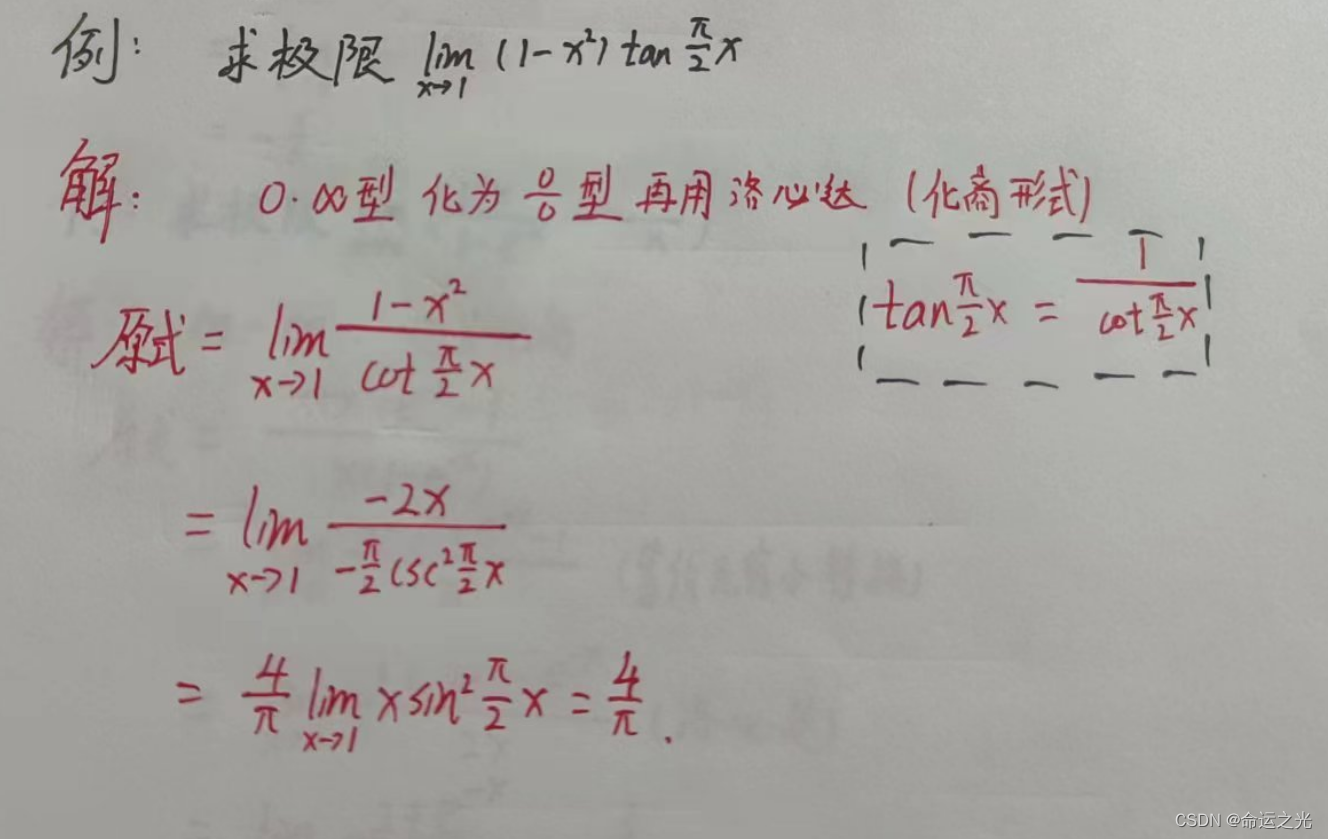 例: 求极限 lim x→1 (1-x²) tan π/2 x
解: 0·∞型 化为 0/0 型 再用洛必达 (化商形式)
tan π/2 x = 1/cot π/2 x
原式 = lim x→1 (1-x²)/(cot π/2 x)
= lim x→1 (-2x)/(-π/2 csc² π/2 x)
= 4/π lim x→1 x sin² π/2 x = 4/π.
CSDN @命运之光